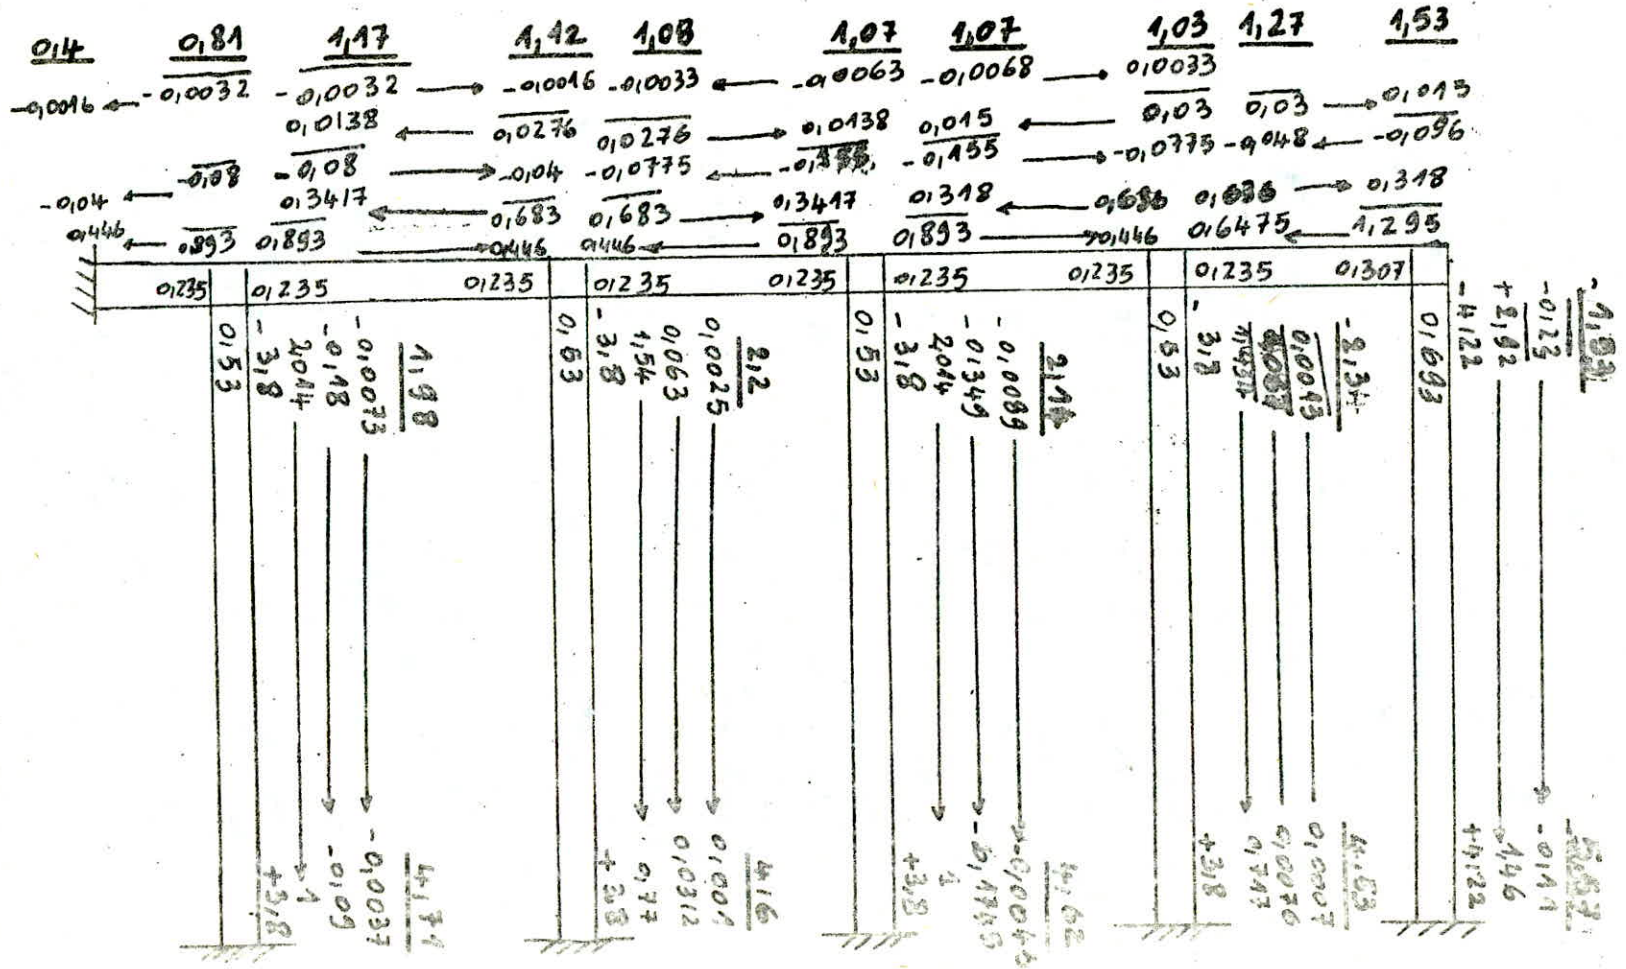 0,4 0,81 1,17 1,12 1,08 1,07 1,07 1,03 1,27 1,53
-0,0016 -0,0032 -0,0032 -0,0016 -0,0033 -0,0063 -0,0068 0,0033
0,0138 0,0276 0,0276 0,0138 0,015 0,03 0,03 0,015
-0,04 -0,08 -0,08 -0,04 -0,0775 -0,155 -0,0775 -0,048 -0,096
0,3417 0,683 0,683 0,3417 0,318 0,636 0,636 0,318
0,446 0,893 0,893 0,446 0,446 0,893 0,893 0,446 0,6475 1,295
0,235 0,235 0,235 0,235 0,235 0,235 0,235 0,235 0,307
0,53
-3,8
2,014
-0,18
-0,0073
1,98
0,53
-3,8
1,54
0,063
0,0025
2,2
0,53
-3,8
2,014
-0,349
-0,0089
0,53
3,8
-2,34
0,693
-4,22
+2,92
-0,23
+3,8
1
-0,09
-0,0037
4,71
+3,8
0,77
0,0312
0,001
4,6
+3,8
1
-0,1745
4,62
+3,8
0,717
0,0076
0,0007
4,53
+4,22
1,46
-0,11